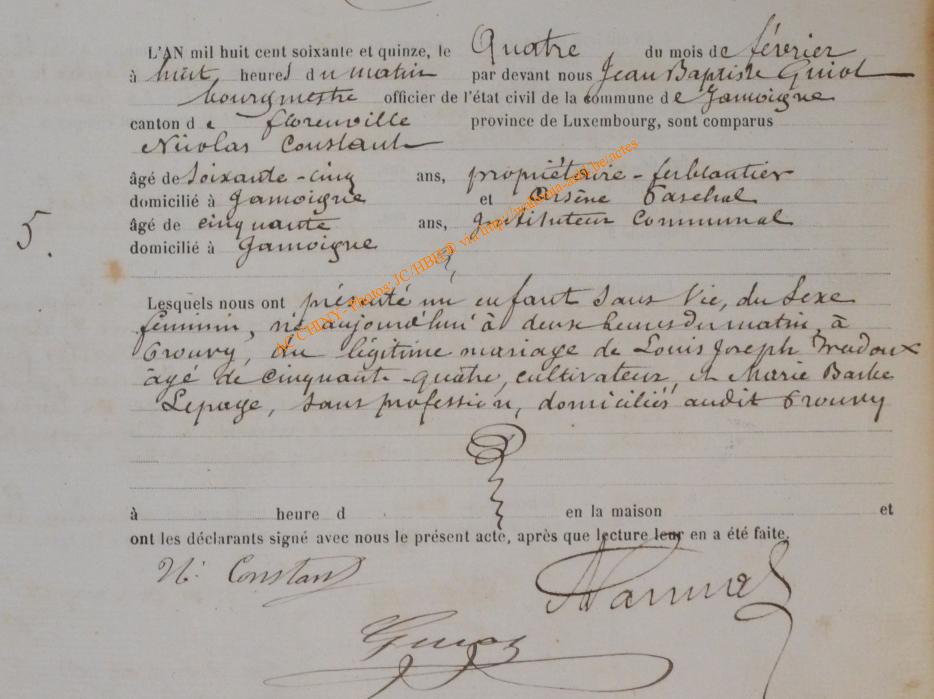 L'AN mil huit cent soixante et quinze, le Quatre du mois de février
à huit heures du matin par devant nous Jean Baptiste Guiot
bourgmestre officier de l'état civil de la commune de Jamoigne
canton de florenville province de Luxembourg, sont comparus
Nicolas Constant
âgé de Soixante-cinq ans, propriétaire-ferblantier
domicilié à Jamoigne et Arsène
âgé de cinquante ans, Instituteur Communal
domicilié à Jamoigne
5.
Lesquels nous ont présenté un enfant sans Vie, du Sexe
féminin, né aujourd'hui à deux heures du matin, à
Prouvy, du légitime mariage de Louis Joseph
âgé de cinquant-quatre, cultivateur, et Marie Barbe
Lepage, sans profession, domiciliés audit Prouvy
à heure d en la maison et
ont les déclarants signé avec nous le présent acte, après que lecture leur en a été faite.
N. Constant
Guiot
ACCHINY - Photos JC/HBH